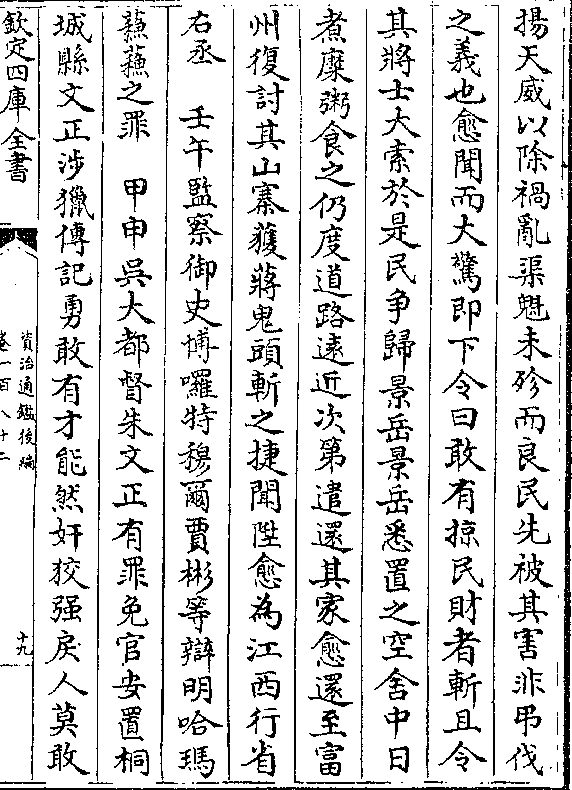 揚天威以除禍亂渠魁未殄而良民先被其害非弔伐
之義也愈聞而大驚即下令曰敢有掠民財者斬且令
其將士大索於是民争歸景岳景岳悉置之空舍中日
煮糜粥食之仍度道路遠近次第遣還其家愈還至富
州復討其山寨獲蔣鬼頭斬之捷聞陞愈為江西行省
右丞　壬午監察御史博囉特穆爾賈彬等辯明哈瑪
蘓蘓之罪　甲申吳大都督朱文正有罪免官安置桐
城縣文正涉獵傳記勇敢有才能然奸狡强戾人莫敢
欽定四庫全書
資治通鑑後編
卷一百八十二
十九